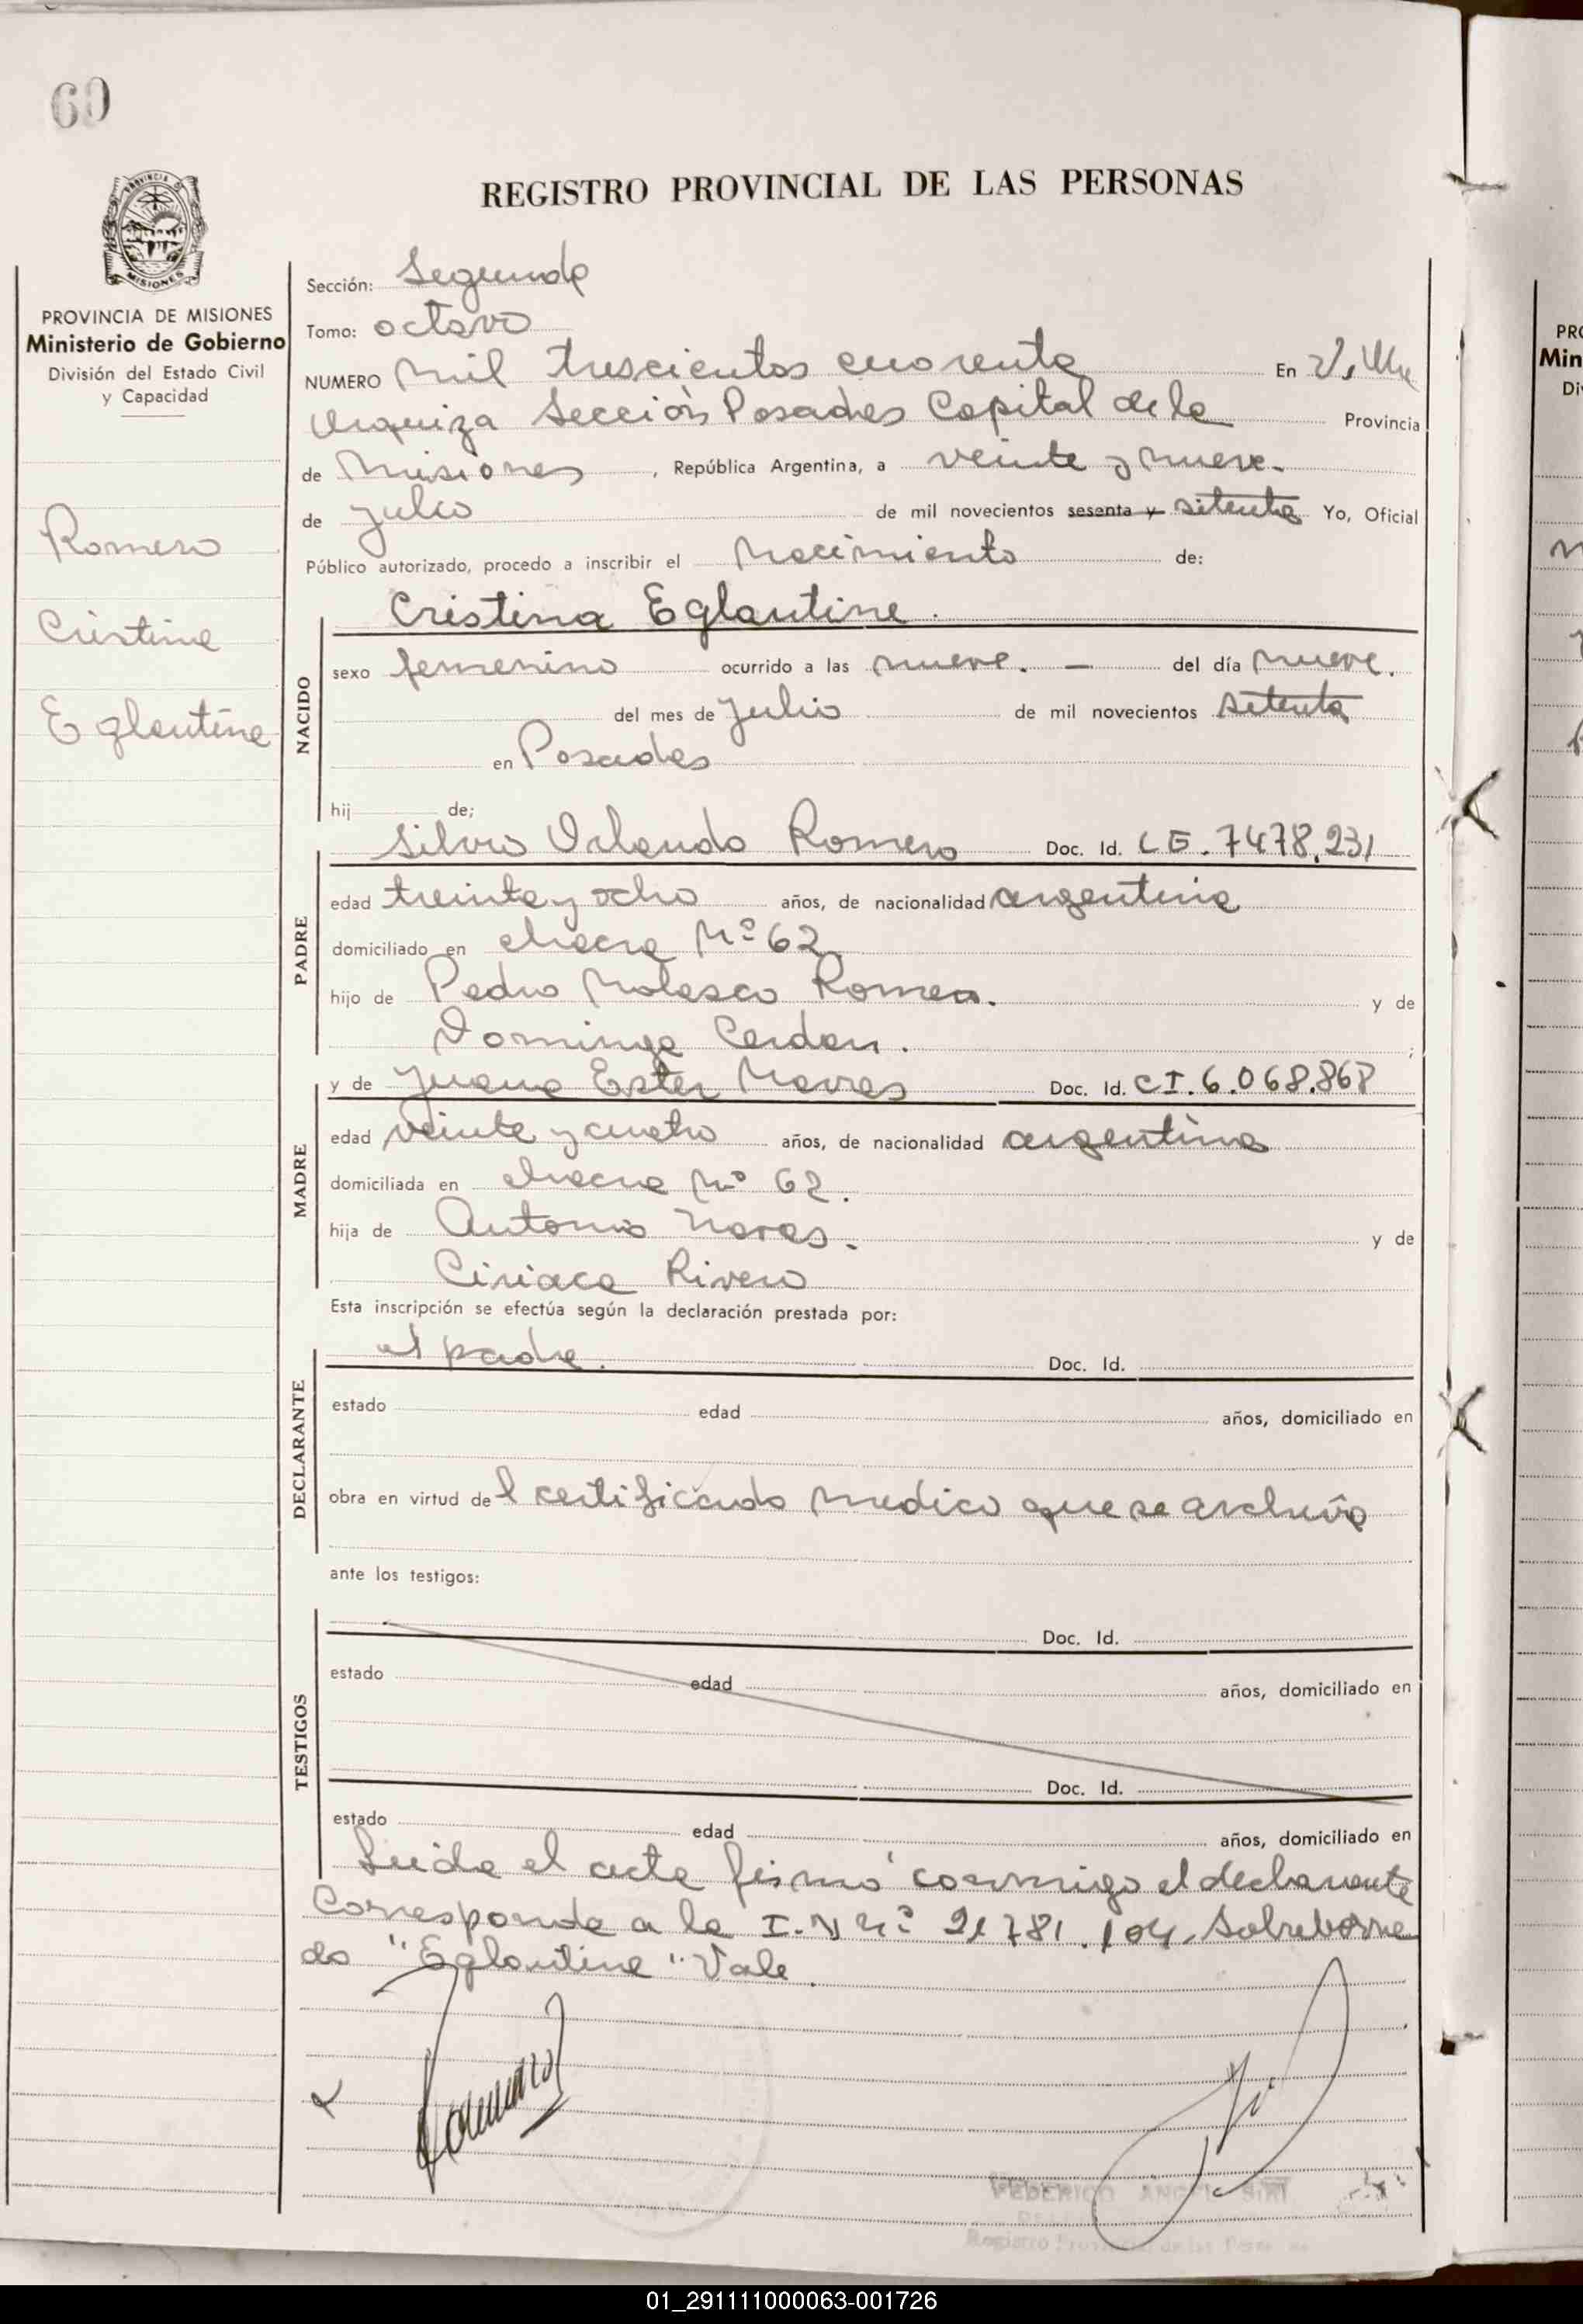 60
REGISTRO PROVINCIAL DE LAS PERSONAS
PROVINCIA DE MISIONES
Ministerio de Gobierno
División del Estado Civil
y Capacidad
Romero
Cristina
Eglantine
Sección: Segunda
Tomo: octavo
NUMERO Mil trescientos cuarenta En Villa
Urquiza Sección Posadas Capital de la Provincia
de Misiones, República Argentina, a veinte y nueve.
de Julio de mil novecientos sesenta y setenta Yo, Oficial
Público autorizado, procedo a inscribir el Nacimiento de:
NACIDO
Cristina Eglantine.
sexo femenino ocurrido a las nueve. — del día nueve.
del mes de Julio de mil novecientos setenta
en Posadas
hij de;
PADRE
Silvio Orlando Romero Doc. Id. L E. 7478.231
edad treinta y ocho años, de nacionalidad argentina
domiciliado en chacra Nº 62
hijo de Pedro Nolasco Romero. y de
Dominga Cerdan. ;
MADRE
y de Juana Ester Navras Doc. Id. C I. 6.068.868
edad veinte y cuatro años, de nacionalidad argentina
domiciliada en chacra Nº 62.
hija de Antonio Naras. y de
Ciriaca Rivero
Esta inscripción se efectúa según la declaración prestada por:
DECLARANTE
el padre. Doc. Id.
estado edad años, domiciliado en
obra en virtud del certificado medico que se archiva
ante los testigos:
TESTIGOS
Doc. Id.
estado edad años, domiciliado en
Doc. Id.
estado edad años, domiciliado en
Leida el acta firmó conmigo el declarante
Corresponde a la I. N Nº 21781.104. Sobreborra
do "Eglantine" Vale.
FEDERICO ANGEL SIRI
Registro Provincial de las Personas
PRO
Min
Di
01_291111000063-001726